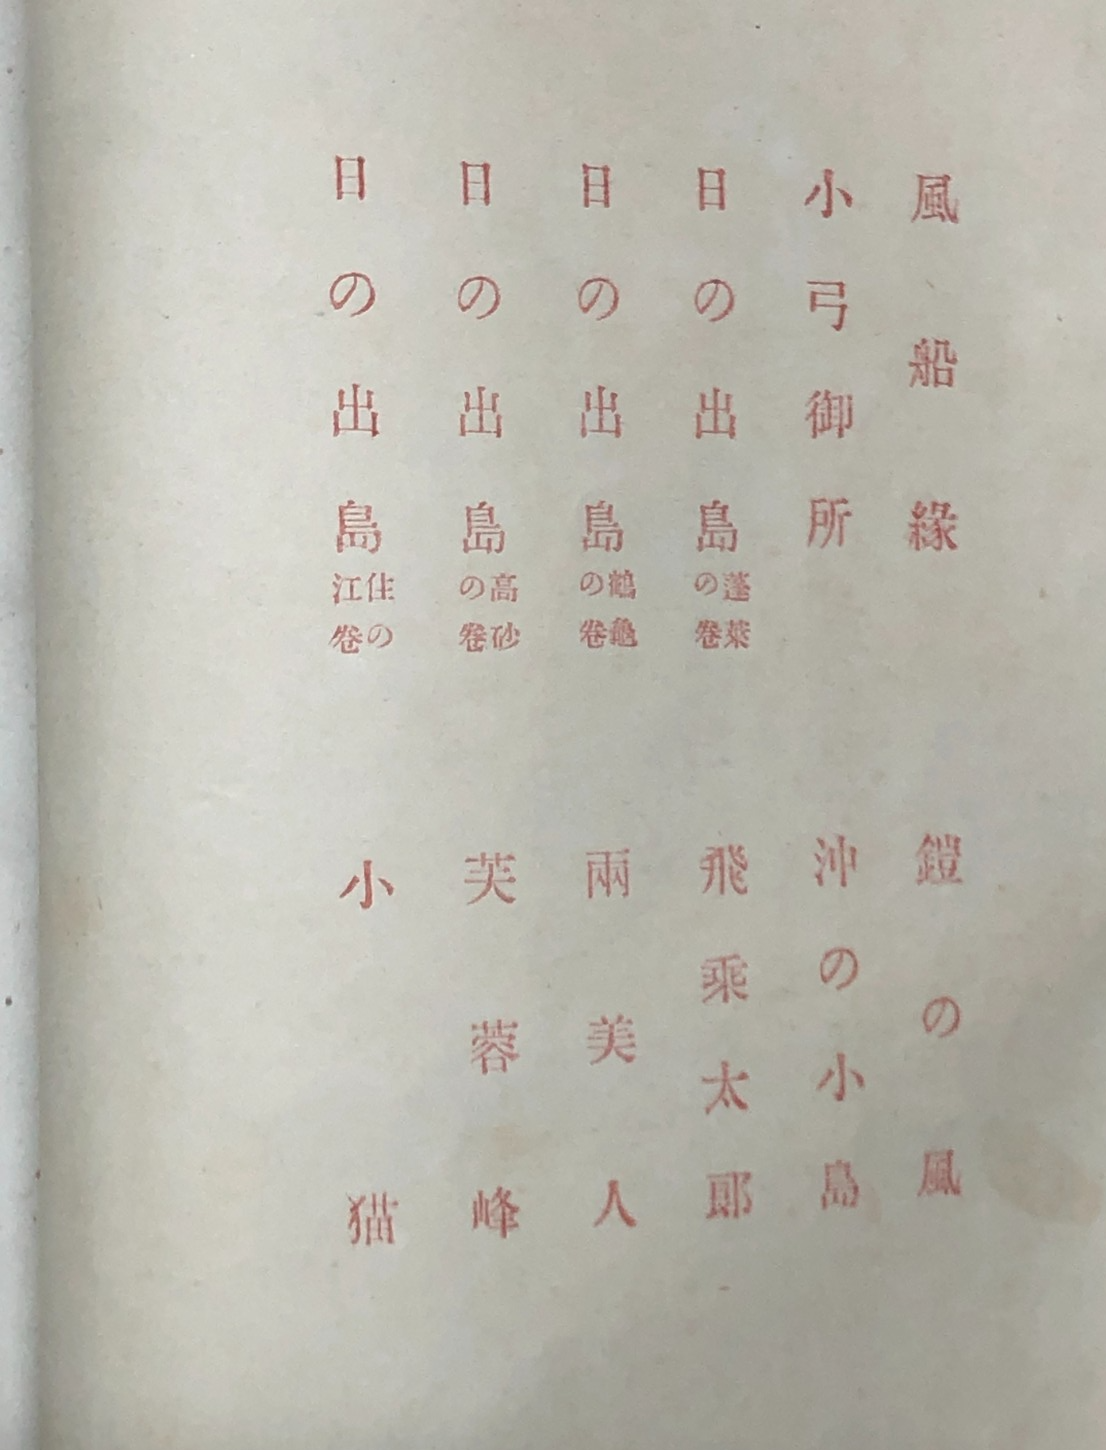 風船緣
小弓御所
日の出島 蓬萊の卷
日の出島 鶴龜の卷
日の出島 高砂の卷
日の出島 住の江卷
鎧の風
沖の小島
飛乘太郞
兩美人
芙蓉峰
小猫